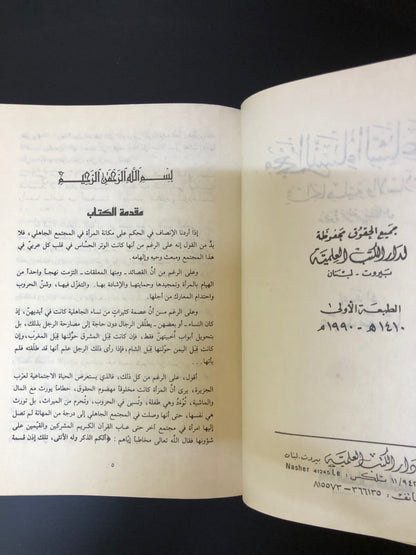 جميع الحقوق محفوظة
لدار الكتب العلمية
بيروت - لبنان
الطبعة الأولى
١٤١٠هـ - ١٩٩٠م
دار الكتب العلمية بيروت. لبنان
Nasher 41245 Le
٣٦٦١٣٥ - ٨١٥٥٧٣
بسم الله الرحمن الرحيم
مقدمة الكتاب
إذا أردنا الإنصاف في الحكم على مكانة المرأة في المجتمع الجاهلي، فلا
بدَّ من القول إنه على الرغم من أنها كانت الوتر الحسّاس في قلب كل عربيّ في
هذا المجتمع ومبعث وحيه وإلهامه.
وعلى الرغم من أنَّ القصائد - ومنها المعلقات - التزمت نهجاً واحداً من
الهيام بالمرأة وتمجيدها وحمايتها والإشادة بها. والتغزّل فيها، وشنّ الحروب
واحتدام المعارك من أجلها.
وعلى الرغم من أنَّ عصمة كثيرات من نساء الجاهلية كانت في أيديهنّ، إذ
كان النساء - أو بعضهن - يطلّقن الرجال دون حاجة إلى مصارحة الرجل بذلك، بل
بتحويل أبواب أخبيتهنّ فقط، فإن كانت قِبل المشرق حوَّلتها قِبل المغرب، وإن
كانت قِبل اليمن حوَّلتها قِبل الشام، فإذا رأى ذلك الرجل علم أنها قد طلقته فلم
يأتها...
أقول، على الرغم من كل ذلك، فالذي يستعرض الحياة الاجتماعية لعرب
الجزيرة، يرى أن المرأة كانت مخلوقاً مهضوم الحقوق، حطاماً يوزع مع المال
والماشية، تُوْءَدُ وهي طفلة، وتُسبى في الحروب، وتُحرم من الميراث، بل تورث
هي نفسها، حتى أنها وصلت في المجتمع الجاهلي إلى درجة من المهانة لم تصل
إليها امرأة في مجتمع آخر حتى عاب القرآن الكريم المشركين والقيّمين على
شؤونها فقال الله تعالى مخاطباً إيّاهم: ﴿ألكم الذكر وله الأنثى، تلك إذن قسمة
٥